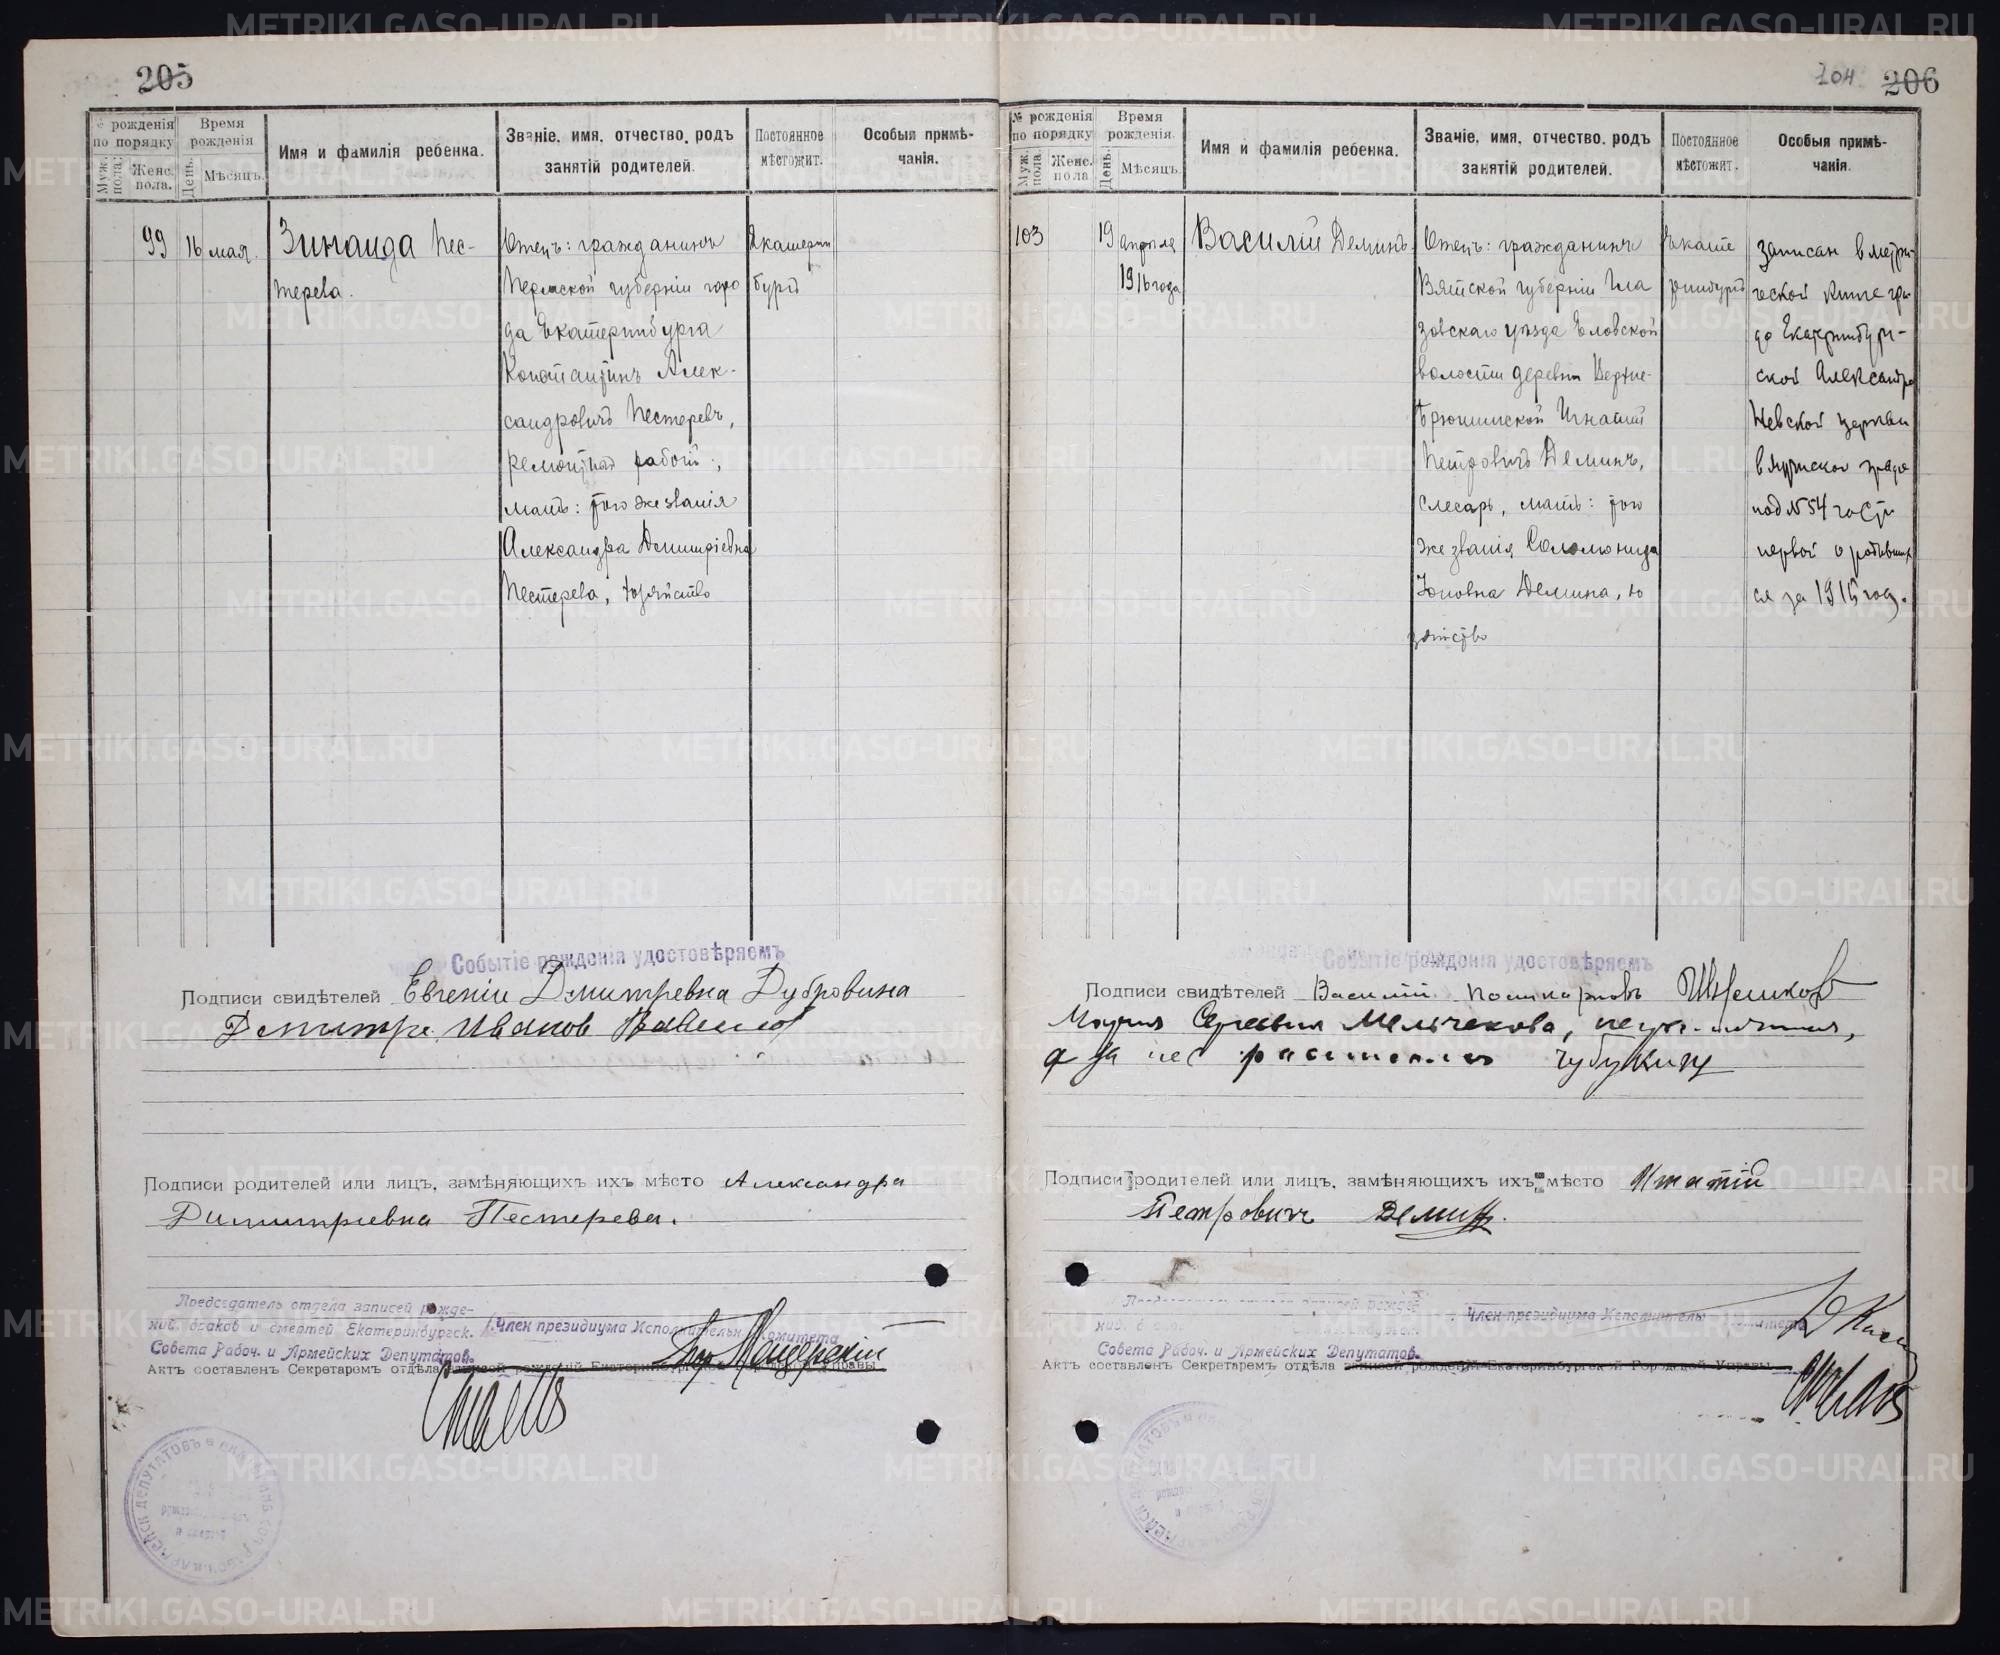 205
№ рожденія по порядку
Муж. пола.
Женс. пола.
Время рожденія
День.
Мѣсяцъ.
Имя и фамилія ребенка.
Званіе, имя, отчество, родъ занятій родителей.
Постоянное мѣстожит.
Особыя примѣчанія.
99
16
мая.
Зинаида Нес-
терева.
Отецъ: гражданинъ
Пермской губерніи горо
да Екатеринбурга
Константинъ Алек-
сандровичъ Нестеревъ,
мать: того же званія
Александра Дмитріевна
Нестерева, хозяйство
Екатерин
бургъ
Событіе рожденія удостовѣряемъ
Подписи свидѣтелей Евгенія Дмитревна Дубровина
Иванов
Подписи родителей или лицъ, замѣняющихъ ихъ мѣсто Александра
Димитриевна Нестерева.
Председатель отдела записей рожде-
ний, браков и смертей Екатеринбургск.
Совета Рабоч. и Армейских Депутатов.
Член президиума Исполнительн Комитета
Актъ составленъ Секретаремъ отдѣла записей рожденій Екатеринбургской Городской Управы
104
206
№ рожденія по порядку
Муж. пола.
Женс. пола
Время рожденія.
День.
Мѣсяцъ.
Имя и фамилія ребенка.
Званіе, имя, отчество, родъ занятій родителей.
Постоянное мѣстожит.
Особыя примѣчанія.
103
19
апрѣля
1916 года
Василій Деминъ.
Отецъ: гражданинъ
Вятской губерніи Гла
зовскаго уѣзда Еловской
волости деревни Верхне-
Игнатій
Петровичъ Деминъ,
слесарь, мать: того
же званія Соломонида
Демина, хо
зяйство
Екате
ринбургъ
Записан в метри-
ческой книге гра-
до Екатеринбург-
ской Александро
Невской церкви
под №54 части
первой о родивших
ся за 1916 год.
Событіе рожденія удостовѣряемъ
Подписи свидѣтелей Василій
Мария
а за нее
Подписи родителей или лицъ, замѣняющихъ ихъ мѣсто Игнатій
Петровичъ Деминъ.
Член президиума Исполнительн Комитета
Совета Рабоч. и Армейских Депутатов.
Актъ составленъ Секретаремъ отдѣла записей рожденій Екатеринбургской Городской Управы
METRIKI.GASO-URAL.RU